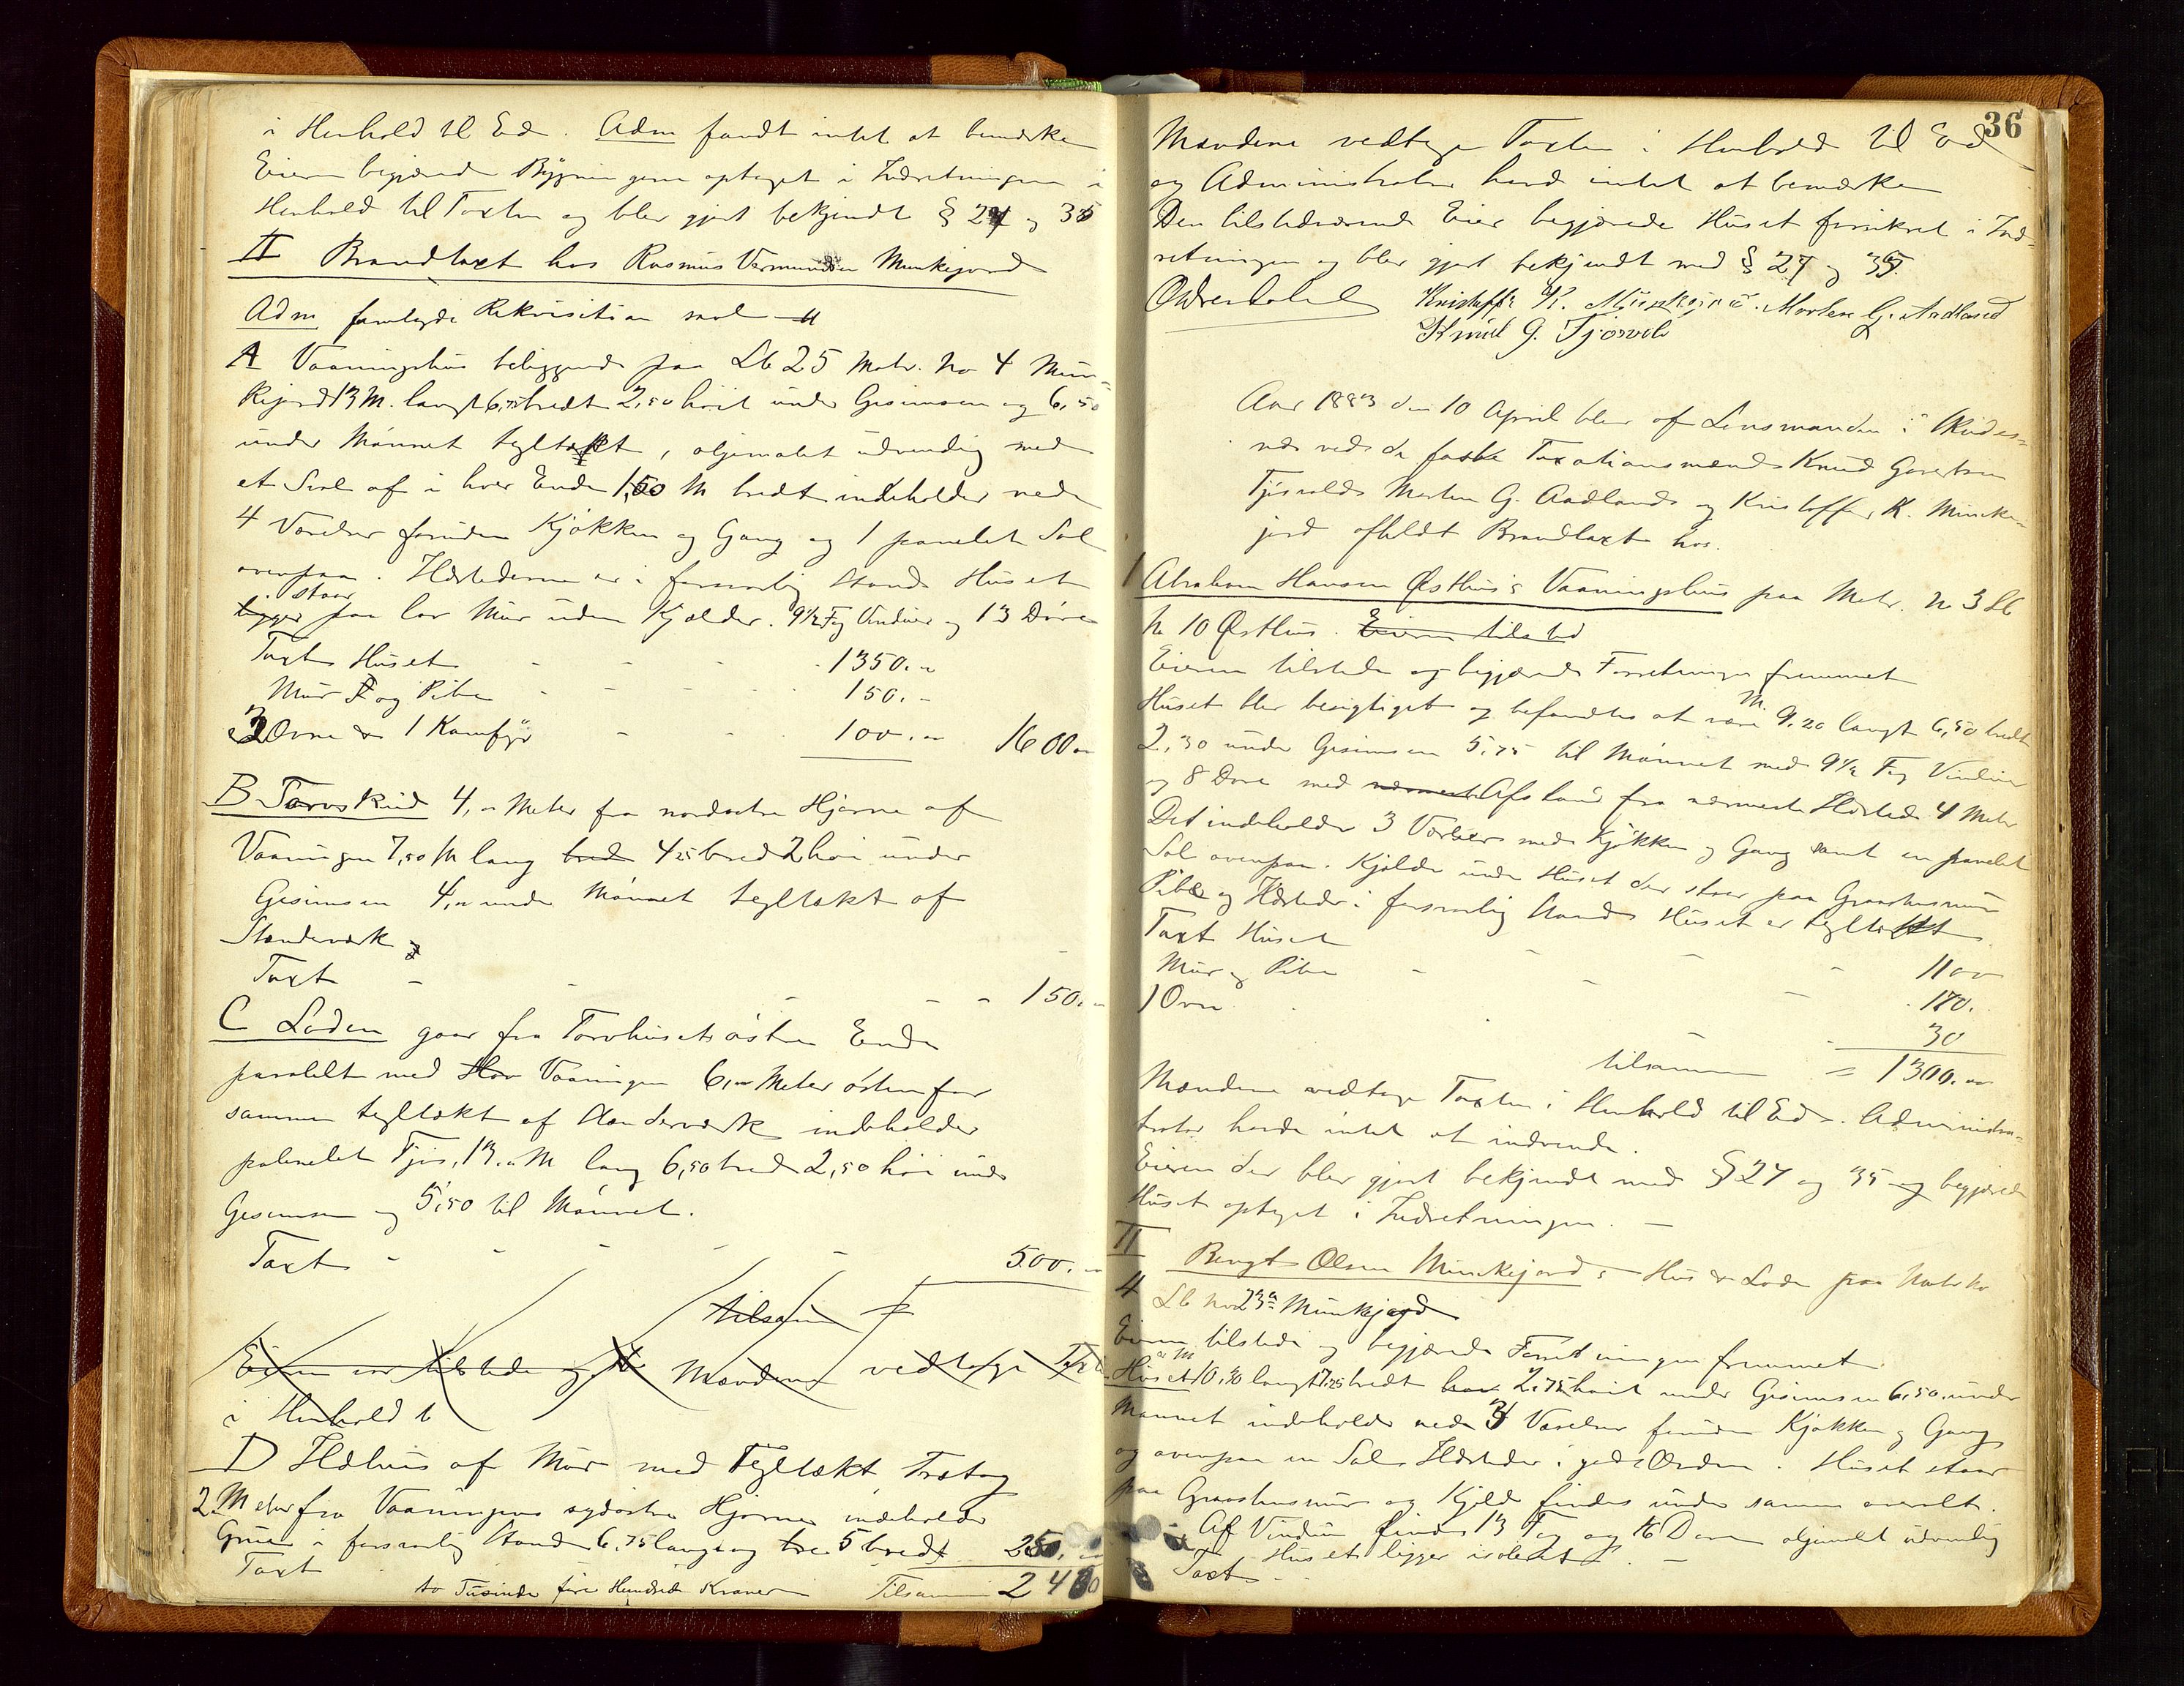 i Henhold til Ed. Adm fandt intet at bemærke
Eieren begjærede Bygningerne optaget i Indretningen i
Henhold til Taxten og blev gjort bekjendt § 27 og 35
II Brandtaxt hos Rasmus Vermundsen Munkejord
Adm fremlagde Rekvisition
A Vaaningshus beliggende paa Lb 25 Matr. No 4 Mun-
kejord 13 M. langt 6,75 bredt 2,50 høit under Gesimsen og 6,50
under Mønnet tegltækt, oljemalet udvendig med
et Sval af i hver Ende 1,50 M bredt indeholder nede
4 Værelser foruden Kjøkken og Gang og 1 panelet Sal
ovenpaa. Ildstederne er i forsvarlig Stand Huset
staar
ligger paa lav Mur uden Kjælder. 9½ Fag Vinduer og 13 Døre
Taxt Huset - - - 1350.„
Mur og Pibe - - - 150.-
2 Ovne & 1 Komfyr - - 100.„ 1600„
B Tørvskud 4,„ Meter fra nordvestre Hjørne af
Vaaningen 7,50 M lang bred 4,25 bred 2 høi under
Gesimsen 4,„ under Mønnet tegltækt af
Stænderværk
Taxt - - - - - 150.„
C Laden gaar fra Torvhusets østre Ende
paralelt med Vaaningen 6,„ Meter østenfor
sammen tegltækt af Stænderværk indeholder
Fjøs, 13,„ M lang 6,50 bred 2,50 høi under
Gesimsen og 5,50 til Mønnet.
Taxt - - - - - 500.„
tilsam
Eieren var tilstede og Mændene vedtoge Taxten
i Henhold t
D Ildhus af Mur med Tegltækt Trætag
2 Meter fra Vaaningens sydøstre Hjørne indeholder
Grue i forsvarlig Stand 6,75 lang og bre 5 bredt 250.„
Taxt
to Tusinde fire Hundrede Kroner Tilsammen 2400
36
Mændene vedtoge Taxten i Henhold til Ed
og Administrator havde intet at bemærke
Den tilstedeværende Eier begjærede Huset forsikret i Ind-
retningen og blev gjort bekjendt med § 27 og 35.
Kristoffer K. Munkejord. Morten G. Aadland
Knud G. Tjøsvold
Aar 1883 den 10 April blev af Lensmanden i Skudes-
næs med de faste Taxationsmænd Knud Govertsen
Tjøsvold Morten G. Aadland og Kristoffer K. Munke-
jord afholdt Brandtaxt hos.
1 Abraham Hansen Østhus's Vaaningshus paa Matr. No 3 Lb
No 10 Østhus. Eieren tilsted
Eieren tilstede og begjærede Forretningen fremmet
Huset blev besigtiget og befandtes at være M. 9.20 langt 6,50 bredt
2,30 under Gesimsen 5,75 til Mønnet med 9½ Fag Vinduer
og 8 Døre med nærmest Afstand fra nærmeste Ildsted 4 Meter
Det indeholder 3 Værelser med Kjøkken og Gang samt en panelet
Sal ovenpaa. Kjælder under Huset der staar paa Graastensmur
Pibe og Ildsteder i forsvarlig Stand Huset er tegltækt
Taxt Huset - - - - 1100
Mur og Pibe - - - 170.
1 Ovn - - 30
tilsammen = 1300.„
Mændene vedtoge Taxten i Henhold til Ed. Administra-
trator havde intet at indvende.
Eieren der blev gjort bekjendt med § 27 og 35 og begjærede
Huset optaget i Indretningen. -
II Bengt Olsen Munkejords Hus & Lade paa Matr No
4 Lb No 23a Munkejord
Eieren tilstede og begjærede Forretningen fremmet
Huset er M 10,30 langt 7,25 bredt 2,75 høit under Gesimsen 6,50 under
Mønnet indeholder nede 3 Værelser foruden Kjøkken og Gang
og ovenpaa en Sal Ildsteder i god Orden. Huset staar
paa Graastensmur og Kjælder findes under samme overalt.
Af Vinduer findes 13 Fag og 16 Døre oljemalt udvendig
Huset ligger isoleret. -
Taxt -